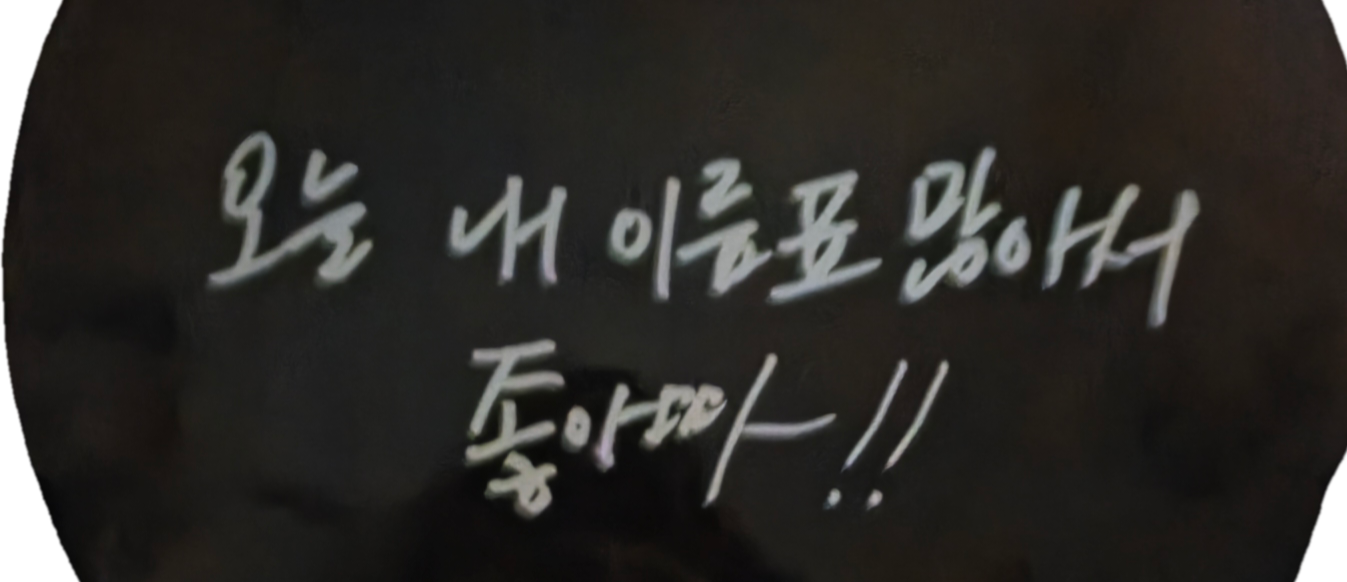 오늘 내 이름표 많아서
좋아따!!